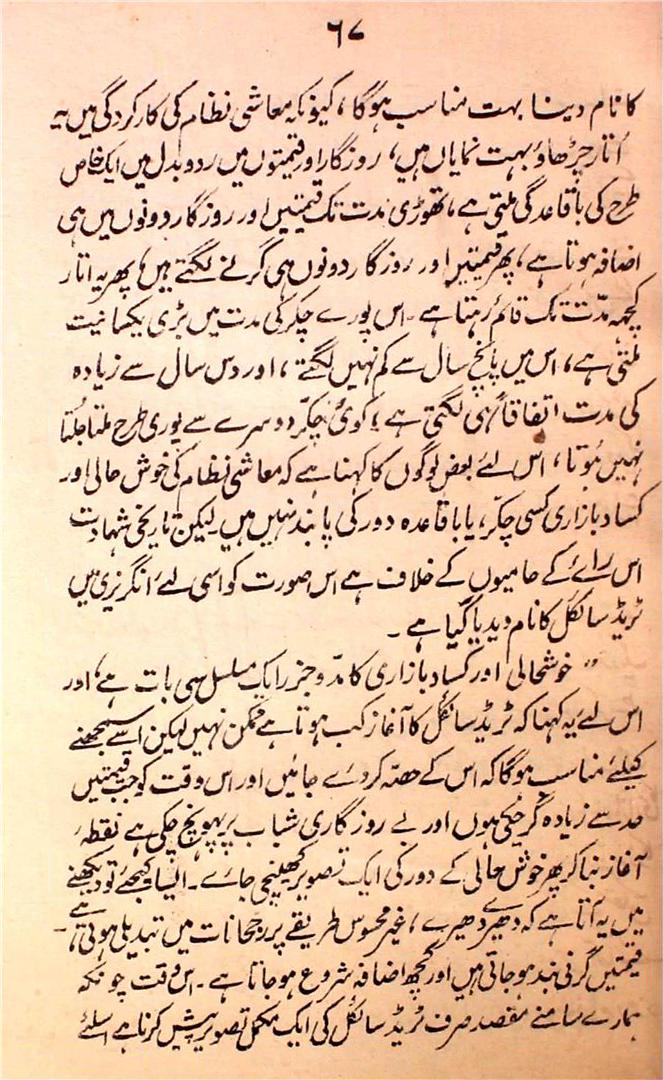 ۶۷
کا نام دینا بہت مناسب ہوگا، کیونکہ معاشی نظام کی کارکردگی میں یہ
اُتار چڑھاؤ بہت نمایاں ہیں، روزگار اور قیمتوں میں ردو بدل میں ایک خاص
طرح کی باقاعدگی ملتی ہے، تھوڑی مدت تک قیمتیں اور روزگار دونوں میں ہی
اضافہ ہوتا ہے، پھر قیمتیں اور روزگار دونوں ہی گرنے لگتے ہیں، پھر یہ اتار
کچھ مدّت تک قائم رہتا ہے۔ اس پورے چکر کی مدت میں بڑی یکسانیت
ملتی ہے، اس میں پانچ سال سے کم نہیں لگتے، اور دس سال سے زیادہ
کی مدت اتفاقاً ہی لگتی ہے، کوئی چکر دوسرے سے پوری طرح ملتا جلتا
نہیں ہوتا، اس لئے بعض لوگوں کا کہنا ہے کہ معاشی نظام کی خوش حالی اور
کساد بازاری کسی چکر، یا باقاعدہ دور کی پابند نہیں ہیں لیکن تاریخی شہادت
اس رائے کے حامیوں کے خلاف ہے اس صورت کو اسی لئے انگریزی میں
ٹریڈ سائکل کا نام دیدیا گیا ہے۔
" خوشحالی اور کساد بازاری کا مدّ و جزر ایک مسلسل سی بات ہے، اور
اس لئے یہ کہنا کہ ٹریڈ سائکل کا آغاز کب ہوتا ہے ممکن نہیں لیکن اسے سمجھنے
کیلئے مناسب ہوگا کہ اس کے حصّہ کر دئے جائیں اور اس وقت کو جب قیمتیں
حد سے زیادہ گر چکی ہوں اور بے روزگاری شباب پر پہونچ چکی ہے نقطہ
آغاز بنا کر پھر خوش حالی کے دور کی ایک تصویر کھینچی جائے۔ ایسا کیجئے تو دیکھنے
میں یہ آتا ہے کہ دھیرے دھیرے، غیر محسوس طریقے پر رجحانات میں تبدیلی ہوتی ہے،
قیمتیں گرنی بند ہو جاتی ہیں اور کچھ اضافہ شروع ہو جاتا ہے۔ اس وقت چونکہ
ہمارے سامنے مقصد صرف ٹریڈ سائکل کی ایک مکمل تصویر پیش کرنا ہے اسلئے